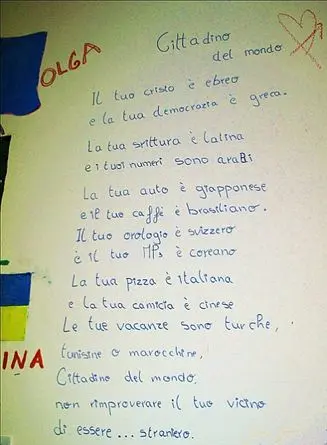 OLGA
Cittadino
del mondo
Il tuo cristo è ebreo
e la tua democrazia è greca.
La tua srittura è latina
e i tuoi numeri sono arabi
La tua auto è giapponese
e il tuo caffè è brasiliano.
Il tuo orologio è svizzero
e il tuo MP3 è coreano
La tua pizza è italiana
e la tua camicia è cinese
Le tue vacanze sono turche,
tunisine o marocchine,
Cittadino del mondo,
non rimproverare il tuo vicino
di essere... straniero.
INA